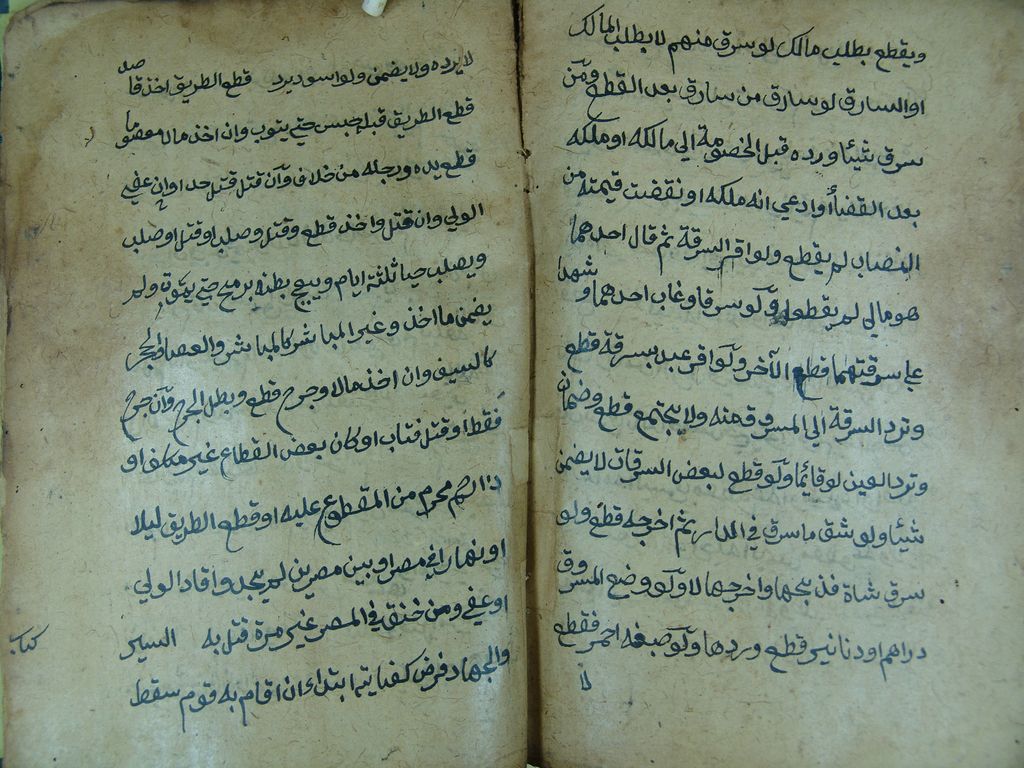 ويقطع بطلب مالك لو سرق منهم لا بطلب المالك
او السارق لو سارق من سارق بعد القطع ومن
سرق شيئا ورده قبل الخصومة الى مالكه او ملكه
بعد القضاء او ادعي انه ملكه او نقصت قيمته من
النصاب لم يقطع ولو اقر السرقة ثم قال احدهما
هو مالي لم يقطع ولو سرقا وغاب احدهما و شهدا
علي سرقتهما قطع الآخر ولو اقر عبد بسرقة قطع
وترد السرقة الي المسروق منه ولا يجتمع قطع وضمان
وترد العين لو قائما ولو قطع لبعض السرقات لا يضمن
شيئا ولو شق ما سرق في الدار ثم اخرجه قطع ولو
سرق شاة فذبحها واخرجها لا ولو وضع المسروق
دراهم او دنانير قطع وردها ولو صبغه احمر فقطع
لا
لا يرده ولا يضمن ولو اسود يرد قطع الطريق اخذ قاصد
قطع الطريق قبله حبس حتي يتوب وان اخذ مالا معصوما
قطع يده ورجله من خلاف وان قتل قتل حدا وان عفي
الولي وان قتل واخذ قطع وقتل وصلب او قتل او صلب
ويصلب حيا ثلثة ايام ويبعج بطنه برمح حتي يموت ولم
يضمن ما اخذ وغير المباشر كالمباشر والعصا والحجر
كالسيف وان اخذ مالا وجرح قطع وبطل الجرح وان جرح
فقط او قتل فتاب او كان بعض القطاع غير مكلف او
ذا رحم محرم من المقطوع عليه او قطع الطريق ليلا
او نهارا في مصر او بين مصرين لم يحد واقاد الولي
او عفي ومن خنق في المصر غير مرة قتل به السير
كتاب
والجهاد فرض كفاية ابتداء ان اقام به قوم سقط